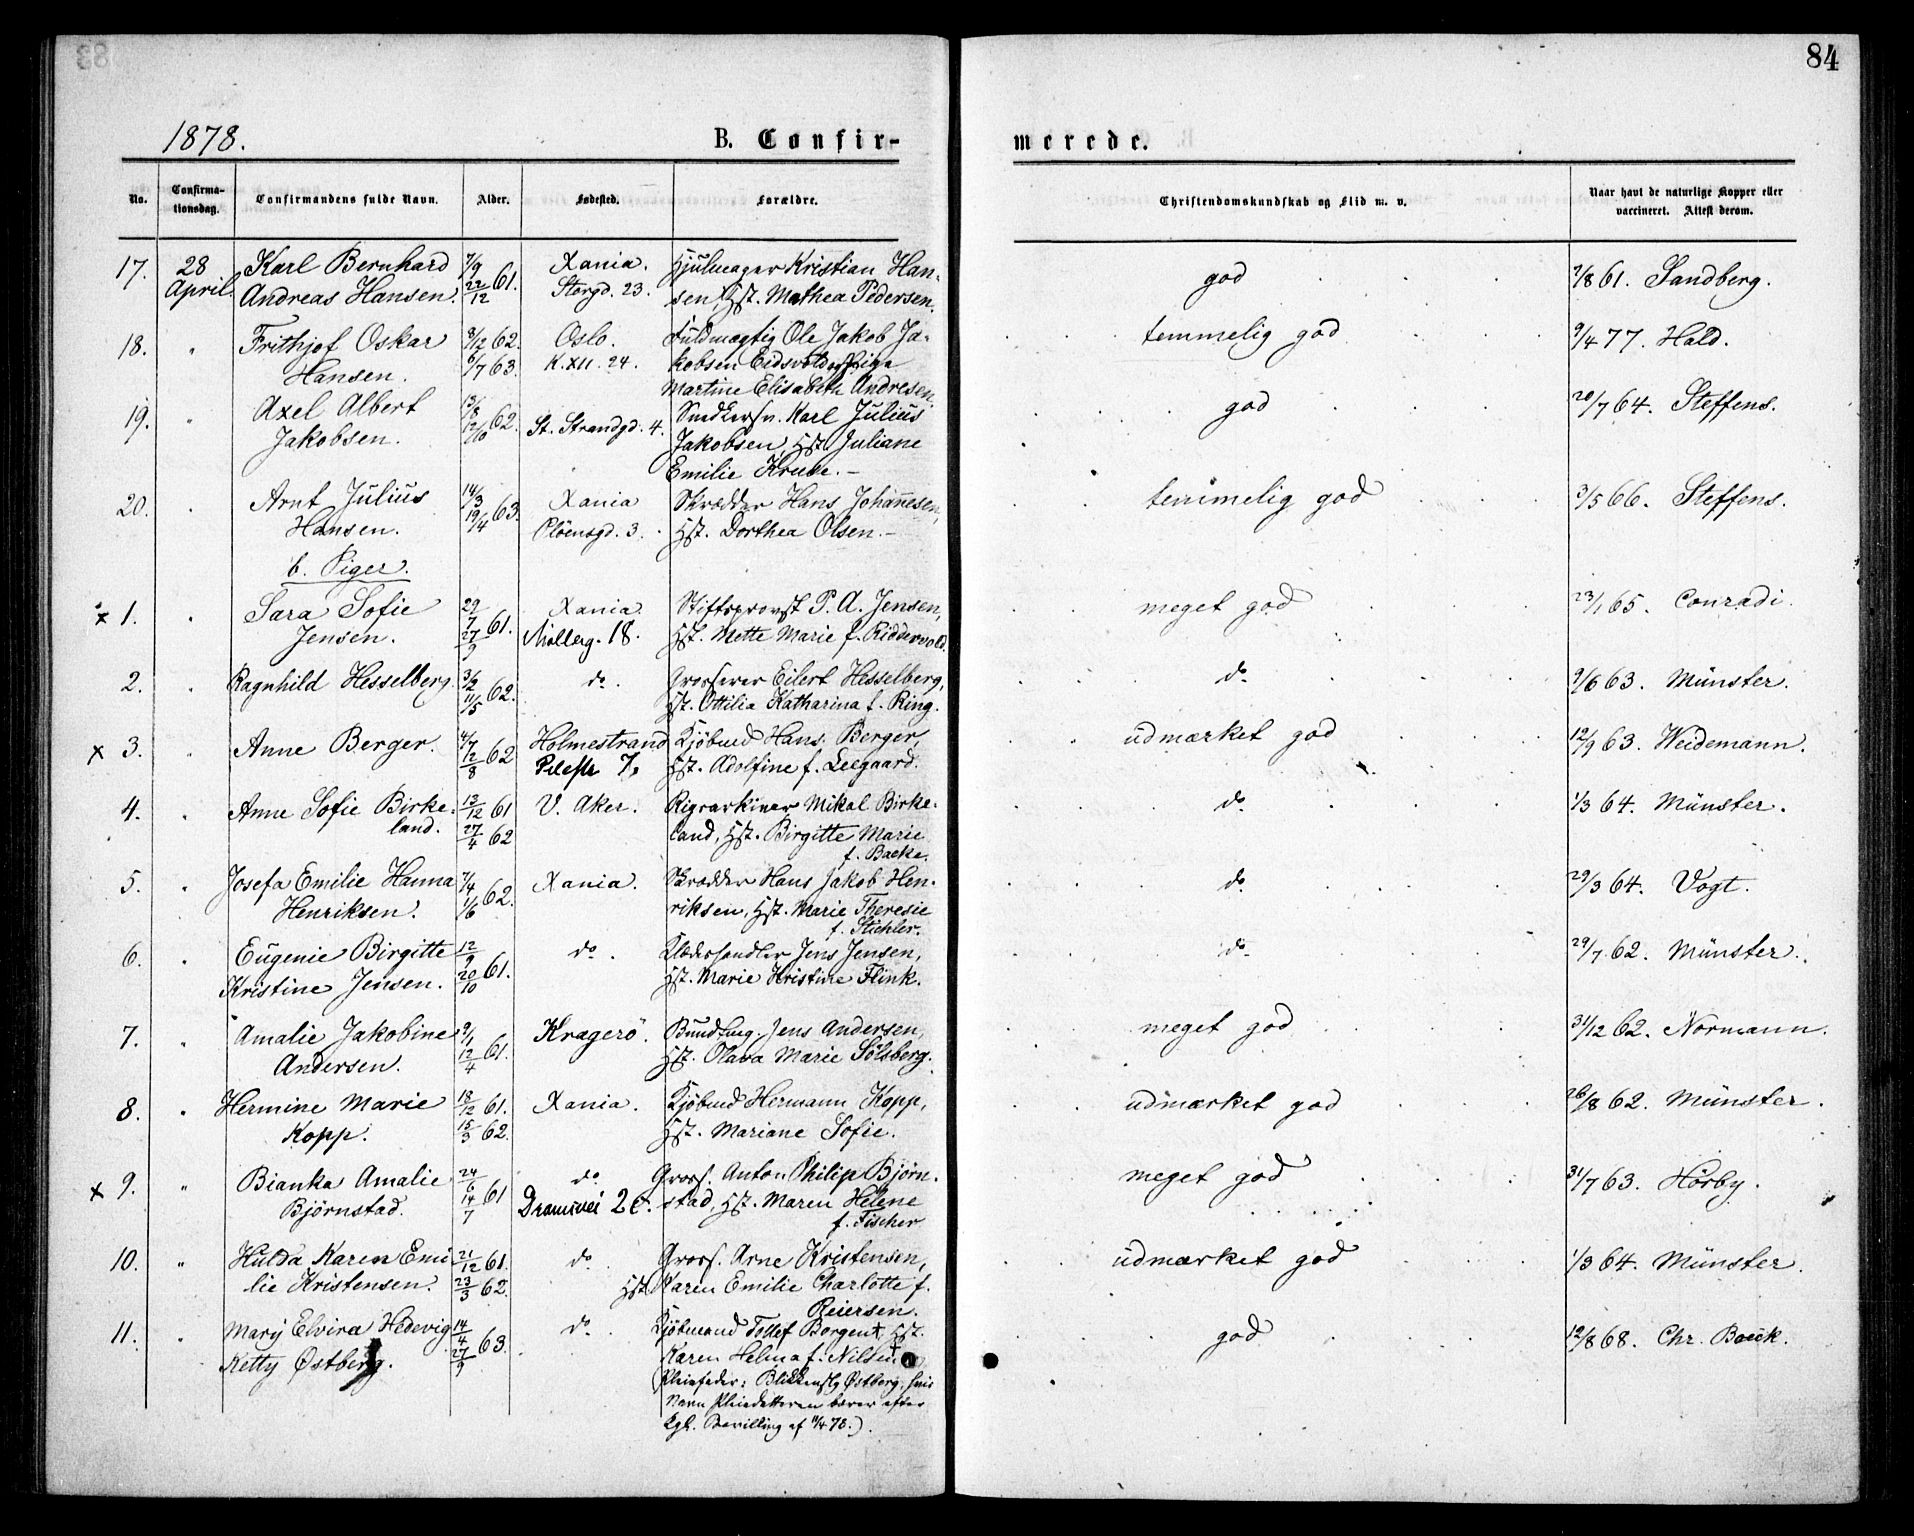 84
1878.
B. Confir-
merede.
No.
Confirma-
tionsdag.
Confirmandens fulde Navn.
Alder.
Fødested.
Forældre.
Christendomskundskab og Flid m. v.
Naar havt de naturlige Kopper eller
vaccineret. Attest derom.
17. 28 Karl Bernhard 7/9 Xania. Hjulmager Kristian Han-
April. Andreas Hansen. 22/12 61. Storgd. 23. sen, Hst. Mathea Pedersen.
god 7/8 61. Sandberg.
18. " Frithjof Oskar 3/12 62. Oslo. Fuldmægtig Ole Jakob Ja-
Hansen. 6/7 63. K. XII. 24. kobsen Eidsvold og Pige
Martine Elisabeth Andresen.
temmelig god 9/4 77. Hald.
19. " Axel Albert 13/8 62. St. Strandgd. 4. Snedkersv. Karl Julius
Jakobsen. 12/10 Jakobsen, Hst. Juliane
Emilie Kruse.
god 20/7 64. Steffens.
20. " Arnt Julius 14/3 63. Xania Skrædder Hans Johannesen,
Hansen. 19/4 Pløensgd. 3. Hst. Dorthea Olsen.
temmelig god 3/5 66. Steffens.
b. Piger.
x 1. " Sara Sofie 29/7 61. Xania. Stiftsprovst P. A. Jensen,
Jensen. 27/9 Møllerg. 18. Hst. Mette Marie f. Riddervold.
meget god 23/1 65. Conradi.
2. " Ragnhild Hesselberg. 3/2 62. do. Grosserer Eilert Hesselberg,
11/5 Hst. Ottilia Katharina f. Ring.
do 9/6 63. Münster.
x 3. " Anne Berger. 4/7 62 Holmestrand Kjøbmd Hans Berger,
12/8 Pilestr 7. Hst. Adolfine f. Leegaard.
udmærket god 12/9 63. Weidemann.
4. " Anne Sofie Birke- 13/12 61 V. Aker. Rigsarkivar Mikal Birke-
land. 27/4 62 land, Hst. Birgitte Marie
f. Backe.
do 1/3 64. Münster.
5. " Josefa Emilie Hanna 7/4 62. Xania. Skrædder Hans Jakob Hen-
Henriksen. 1/6 riksen, Hst. Marie Theresie
f. Stichler.
do 29/3 64. Vogt.
6. " Eugenie Birgitte 12/9 61. do. Klædeshandler Jens Jensen,
Kristine Jensen. 20/10 Hst. Marie Kristine Flink.
do 29/7 62. Münster.
7. " Amalie Jakobine 9/1 61. Kragerö. Jens Andersen,
Andersen. 12/4 Hst. Olava Marie Sølsberg.
meget god 31/12 62. Normann.
8. " Hermine Marie 18/12 61. Xania. Kjøbmd Hermann Kopp,
Kopp. 15/3 62. Hst. Mariane Sofie.
udmærket god 26/8 62. Münster.
x 9. " Bianka Amalie 24/6 61 do Gross. Anton Philip Bjørn-
Bjørnstad. 14/7 Dramsvei 2c. stad, Hst. Maren Helene
f. Fischer
meget god 31/7 63. Hörby.
10. " Hulda Karen Emi 21/12 61. do. Gross. Arne Kristensen,
lie Kristensen. 23/3 62. Hst. Karen Emilie Charlotte f.
Reiersen.
udmærket god 1/3 64. Münster.
11. " Mary Elvira Hedevig 14/4 63. do. Kjøbmand Tollef Borgen †, Hst.
Ketty Østberg. 27/9 Karen Helma f. Nilsen †
(Pleiefader: Blikkenslg Østberg, hvis
Navn Pleiedatteren bærer efter
Kgl. Bevilling af 11/4 78.).
god 12/8 68. Chr. Boeck.